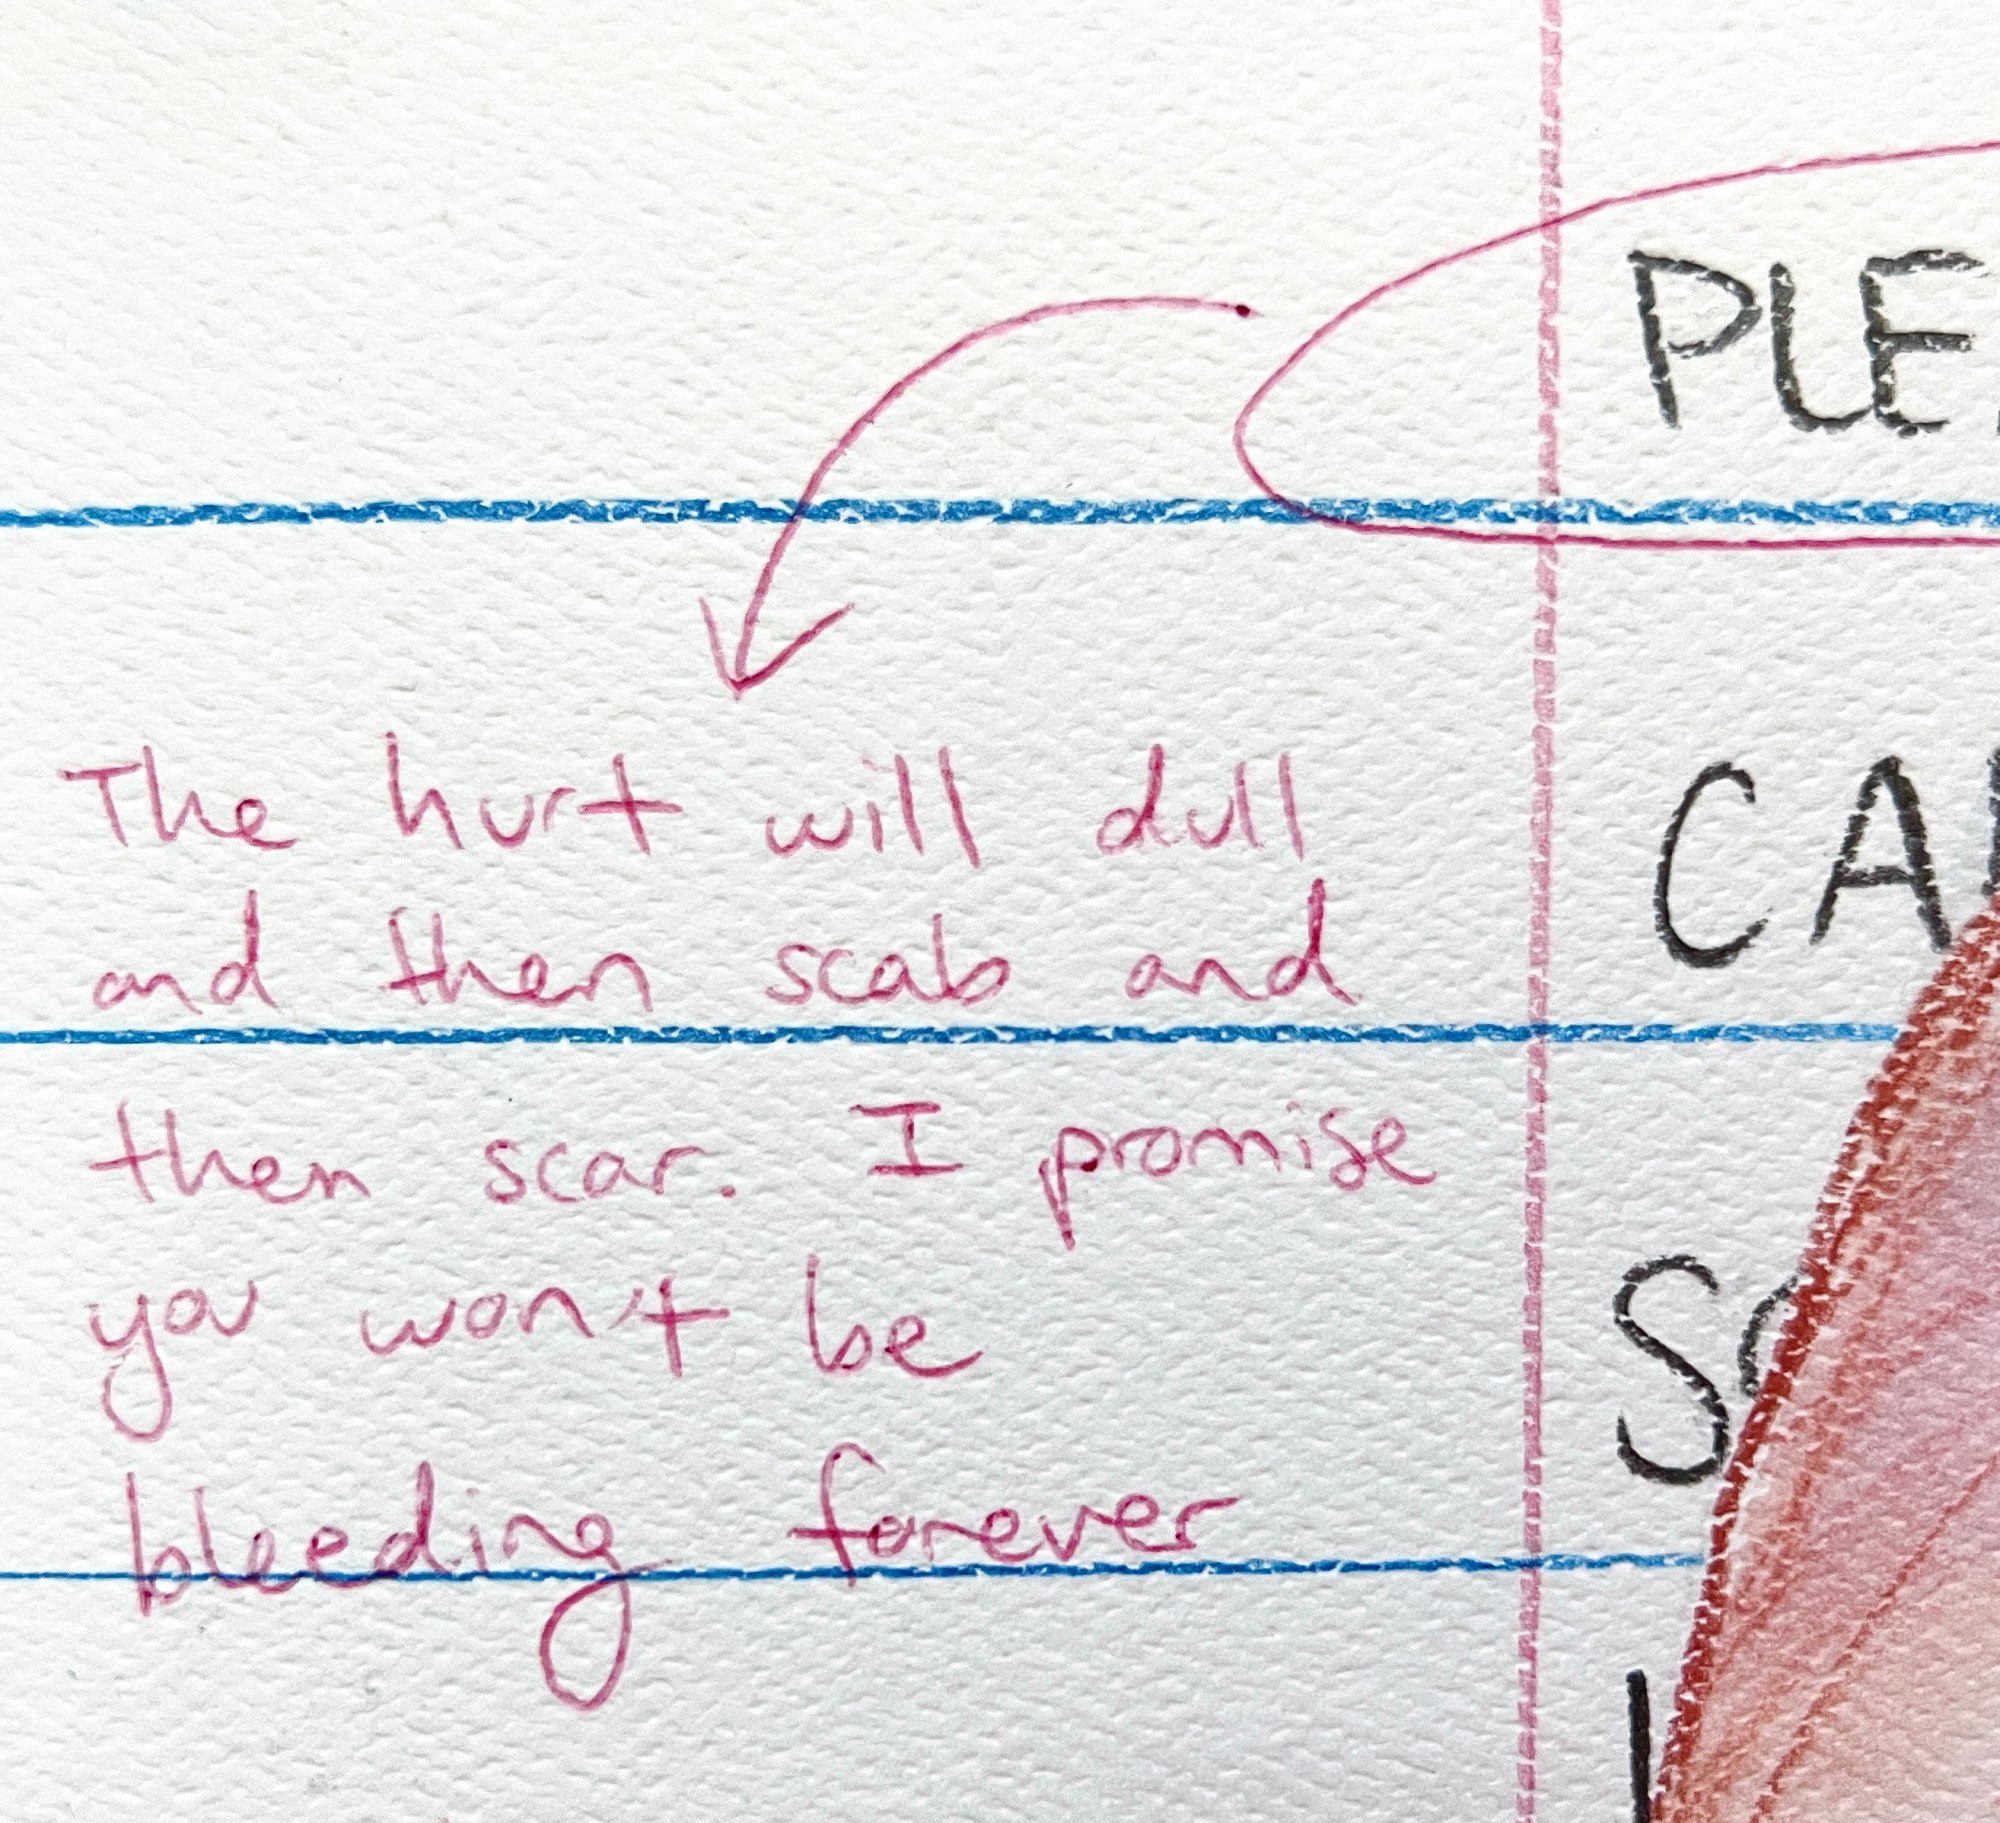 The hurt will dull
and then scab and
then scar. I promise
you won't be
bleeding forever